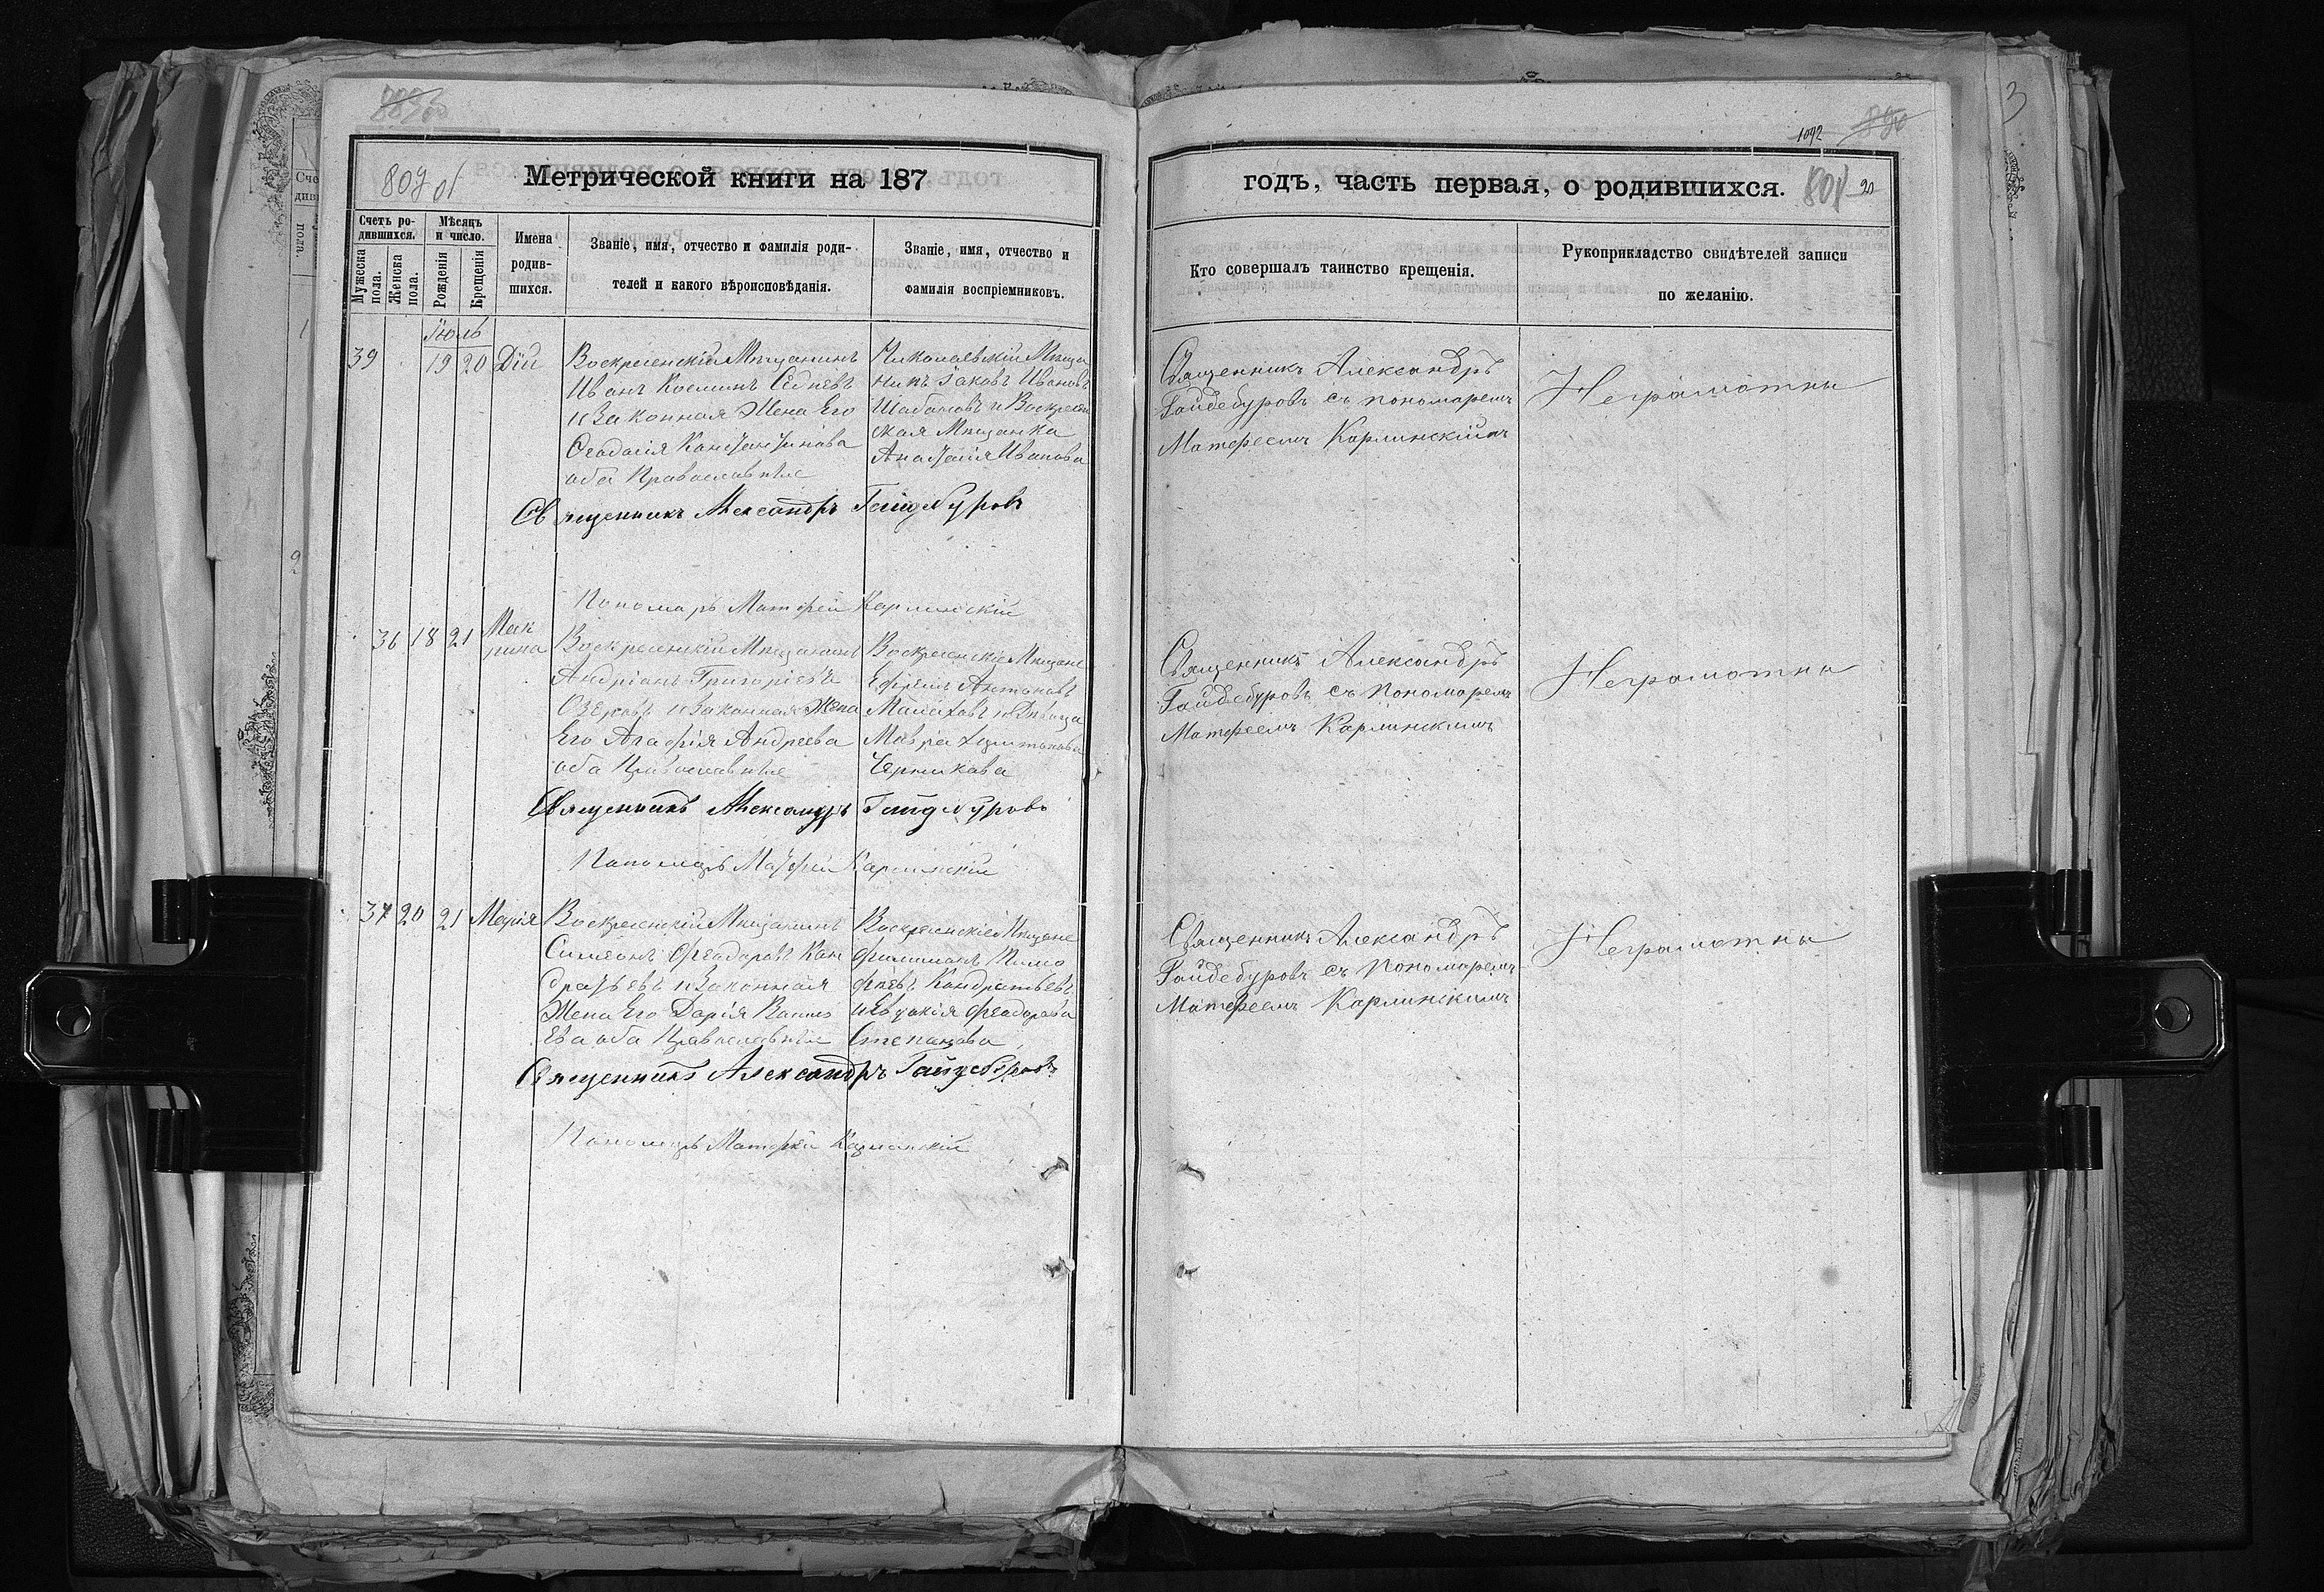 Метрической книги на 187
Счетъ родившихся.
Мѣсяцъ и число.
Мужеска пола.
Женска пола.
Рожденія
Крещенія
Имена родившихся.
Званіе, имя, отчество и фамилія родителей и какого вѣроисповѣданія.
Званіе, имя, отчество и фамилія воспріемниковъ.
Іюль
39 19 20 Дій
Воскресенскій Мѣщанинъ
Иванъ Козминъ Седневъ
и Законная Жена Его
Феодосія Константинова
оба Православные
Николаевскій Мѣща
нинъ Іаковъ Ивановъ
Шабановъ и Воскресен
ская Мѣщанка
Анастасія Иванова
Священникъ Александръ Гайдебуровъ
Пономарь Матфей Карлинскій
36 18 21 Мак
рина
Воскресенскій Мѣщанинъ
Андріанъ Григоріевъ
Озеровъ и Законная Жена
Его Агафія Андреева
оба Православные
Воскресенскіе Мѣщане
Ефремъ Антоновъ
и Дѣвица
Черникова
Священникъ Александръ Гайдебуровъ
Пономарь Матфей Карлинскій
37 20 21 Марія
Воскресенскій Мѣщанинъ
Симеонъ Феодоровъ Кон
дратьевъ и Законная
Жена Его Дарія
ева оба Православные
Воскресенскіе Мѣщане
Филимонъ Тимо
феевъ Кондратьевъ
и Евдокія Феодорова
Степанова
Священникъ Александръ Гайдебуровъ
Пономарь Матфей Карлинскій
1092
20
годъ, часть первая, о родившихся.
Кто совершалъ таинство крещенія.
Рукоприкладство свидѣтелей записи по желанію.
Священникъ Александръ
Гайдебуровъ съ пономаремъ
Матфеемъ Карлинскимъ
Неграмотны
Священникъ Александръ
Гайдебуровъ съ Пономаремъ
Матфеемъ Карлинскимъ
Неграмотны
Священникъ Александръ
Гайдебуровъ съ Пономаремъ
Матфеемъ Карлинскимъ
Неграмотны